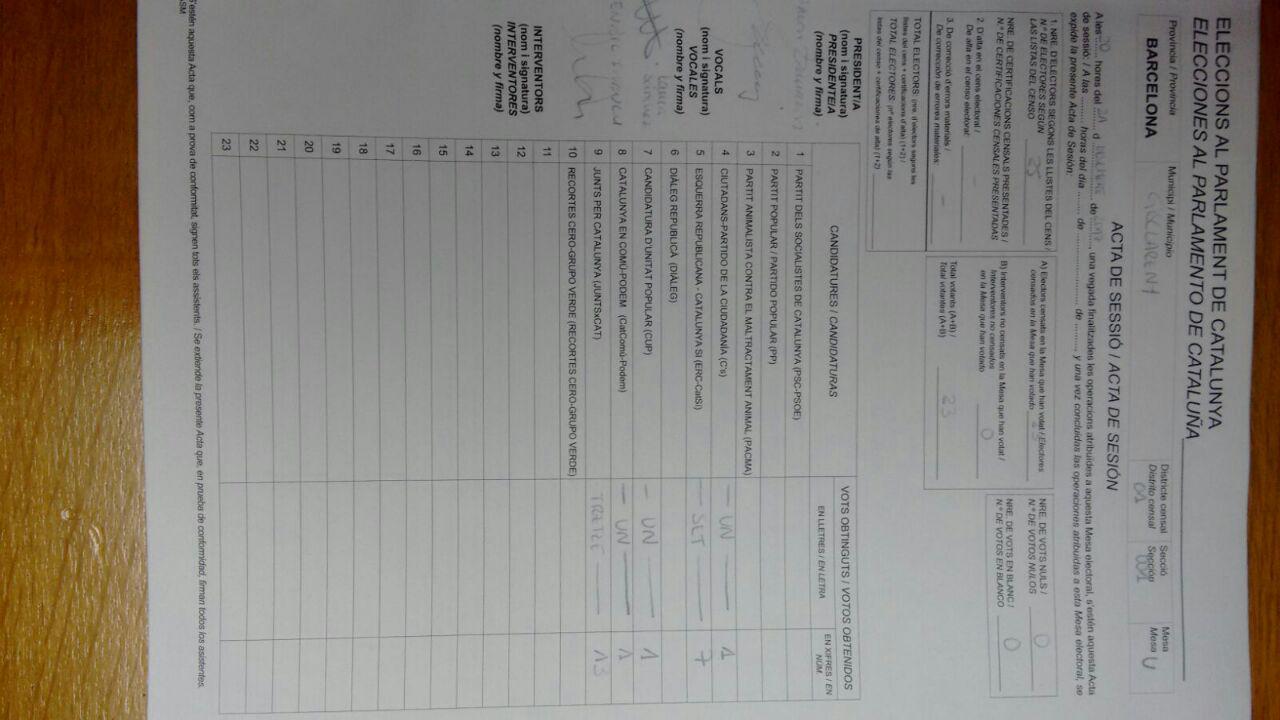 ELECCIONS AL PARLAMENT DE CATALUNYA
ELECCIONES AL PARLAMENTO DE CATALUÑA
Província / Provincia
BARCELONA
Municipi / Municipio
Districte censal
Distrito censal
01
Secció
Sección
001
Mesa
Mesa U
ACTA DE SESSIÓ / ACTA DE SESIÓN
A les 20 hores del 21 d de 2017, una vegada finalitzades les operacions atribuïdes a aquesta Mesa electoral, s'estén aquesta Acta
de sessió. / A las ........ horas del día ........ de ........ de ........ y una vez concluidas las operaciones atribuidas a esta Mesa electoral, se
expide la presente Acta de Sesión:
1. NRE. D'ELECTORS SEGONS LES LLISTES DEL CENS /
N.º DE ELECTORES SEGÚN
LAS LISTAS DEL CENSO 25
NRE. DE CERTIFICACIONS CENSALS PRESENTADES /
N.º DE CERTIFICACIONES CENSALES PRESENTADAS
2. D'alta en el cens electoral /
De alta en el censo electoral: —
3. De correcció d'errors materials /
De corrección de errores materiales: —
TOTAL ELECTORS: (nre. d'electors segons les
llistes del cens + certificacions d'alta) (1+2) /
TOTAL ELECTORES: (nº electores según las
listas del censo + certificaciones de alta) (1+2)
A) Electors censats en la Mesa que han votat / Electores
censados en la Mesa que han votado 23
B) Interventors no censats en la Mesa que han votat /
Interventores no censados
en la Mesa que han votado 0
Total votants (A+B) /
Total votantes (A+B) 23
NRE. DE VOTS NULS /
N.º DE VOTOS NULOS 0
NRE. DE VOTS EN BLANC /
N.º DE VOTOS EN BLANCO 0
PRESIDENT/A
(nom i signatura)
PRESIDENTE/A
(nombre y firma)
VOCALS
(nom i signatura)
VOCALES
(nombre y firma)
INTERVENTORS
(nom i signatura)
INTERVENTORES
(nombre y firma)
CANDIDATURES / CANDIDATURAS
VOTS OBTINGUTS / VOTOS OBTENIDOS
EN LLETRES / EN LETRA
EN XIFRES / EN NÚM.
1 PARTIT DELS SOCIALISTES DE CATALUNYA (PSC-PSOE)
2 PARTIT POPULAR / PARTIDO POPULAR (PP)
3 PARTIT ANIMALISTA CONTRA EL MALTRACTAMENT ANIMAL (PACMA)
4 CIUTADANS-PARTIDO DE LA CIUDADANÍA (C's) — UN — 1
5 ESQUERRA REPUBLICANA - CATALUNYA SÍ (ERC-CatSí) — SET — 7
6 DIÀLEG REPUBLICÀ (DIÀLEG)
7 CANDIDATURA D'UNITAT POPULAR (CUP) — UN — 1
8 CATALUNYA EN COMÚ-PODEM (CatComú-Podem) — UN — 1
9 JUNTS PER CATALUNYA (JUNTSxCAT) TRETZE — 13
10 RECORTES CERO-GRUPO VERDE (RECORTES CERO-GRUPO VERDE)
11
12
13
14
15
16
17
18
19
20
21
22
23
S'estén aquesta Acta que, com a prova de conformitat, signen tots els assistents. / Se extiende la presente Acta que, en prueba de conformidad, firman todos los asistentes.